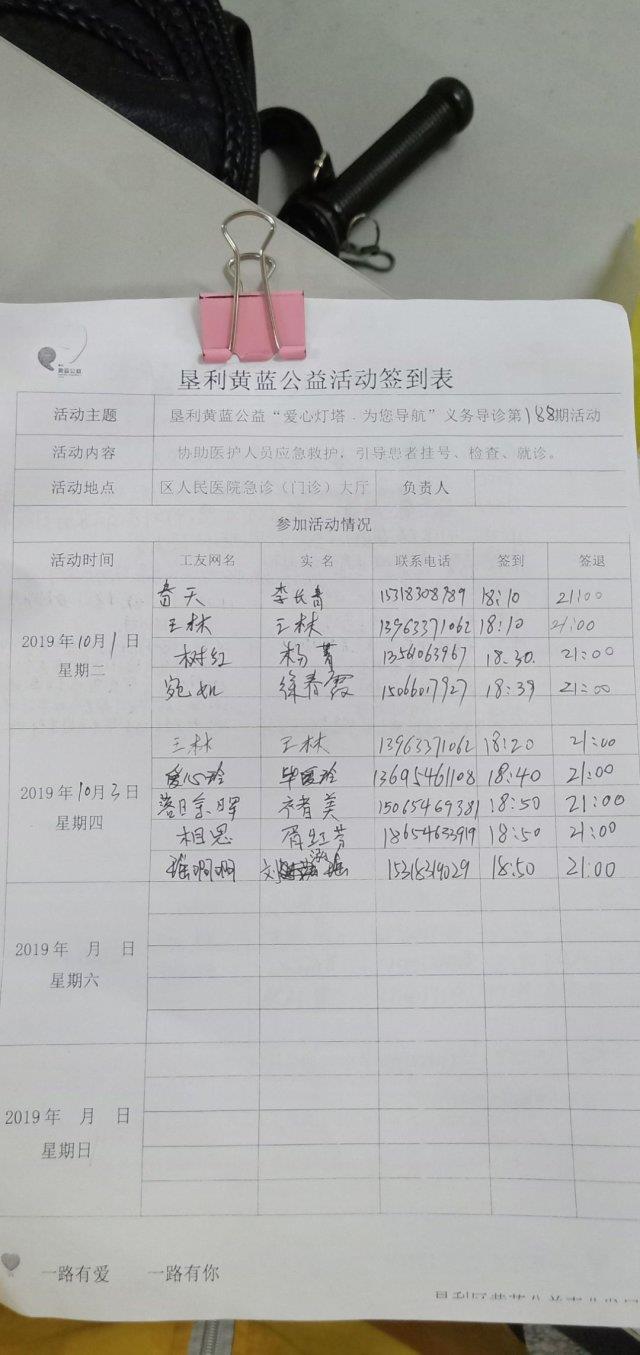 黄蓝公益
垦利黄蓝公益活动签到表
活动主题 垦利黄蓝公益“爱心灯塔﹒为您导航”义务导诊第188期活动
活动内容 协助医护人员应急救护，引导患者挂号、检查、就诊。
活动地点 区人民医院急诊（门诊）大厅 负责人
参加活动情况
活动时间 工友网名 实 名 联系电话 签到 签退
2019年10月1日
星期二
春天 李长青 15318308789 18:10 21:00
王林 王林 13963371062 18:10 21:00
树红 杨菁 1356063967 18.30. 21:00
宛如 徐春霞 15066017927 18:39 21:00
2019年10月3日
星期四
王林 王林 13963371062 18:20 21:00
爱心玲 毕爱玲 13695461108 18:40 21:00
落日余晖 齐者美 15065469381 18:50 21:00
相思 胥红芳 18654632919 18:50 21:00
瑶啊啊 刘泓瑶 15318319029 18:50 21:00
2019年 月 日
星期六
2019年 月 日
星期日
一路有爱 一路有你